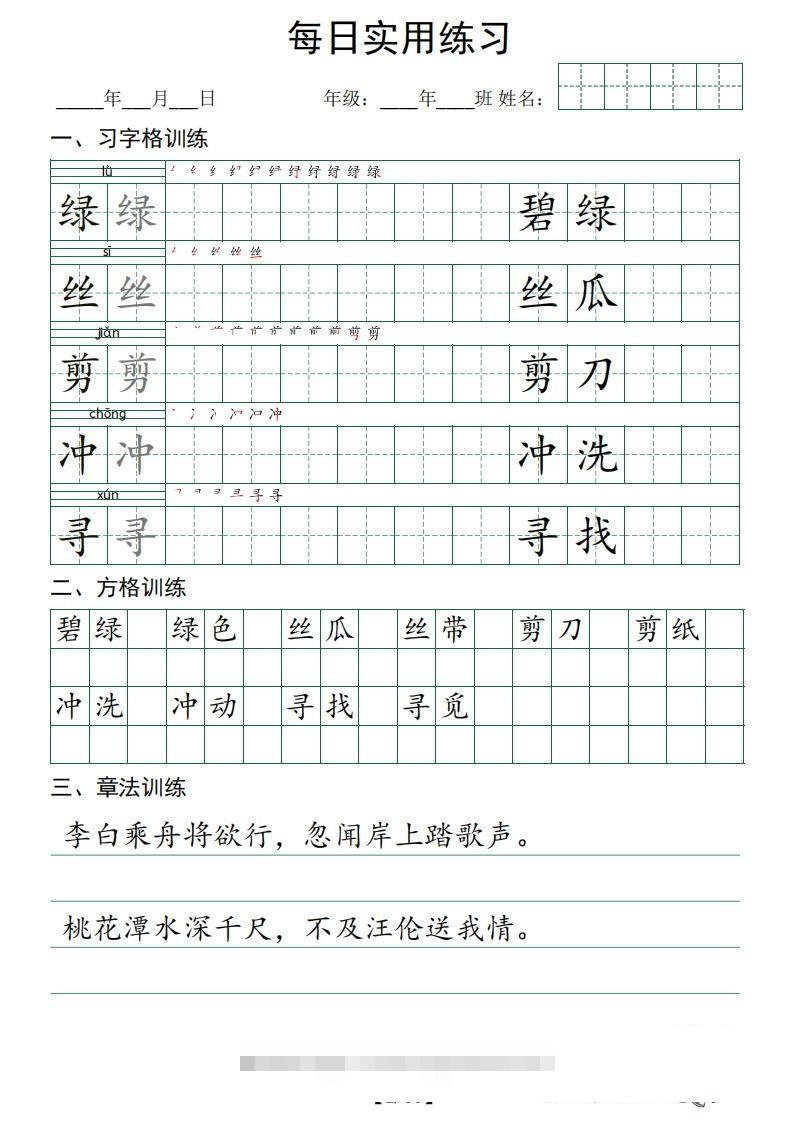 每日实用练习
_____年___月___日 年级：____年____班 姓名：
一、习字格训练
lǜ
绿 绿 碧 绿
sī
丝 丝 丝 瓜
jiǎn
剪 剪 剪 刀
chōng
冲 冲 冲 洗
xún
寻 寻 寻 找
二、方格训练
碧绿 绿色 丝瓜 丝带 剪刀 剪纸
冲洗 冲动 寻找 寻觅
三、章法训练
李白乘舟将欲行，忽闻岸上踏歌声。
桃花潭水深千尺，不及汪伦送我情。